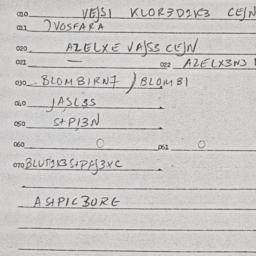 010 VEJSI KLOR3D2K3 CEJN
011 JVOSFARA
020 AZELXE VAJS3 CEJN
021 — 022 AZELX3NJ
030 BLOMBIRN7 )BLOMBI
040 JASL3S
050 S+PI3N
060 O 061 O
070 BLUT2K3S+PAJ3XC
ASPIC3ORE